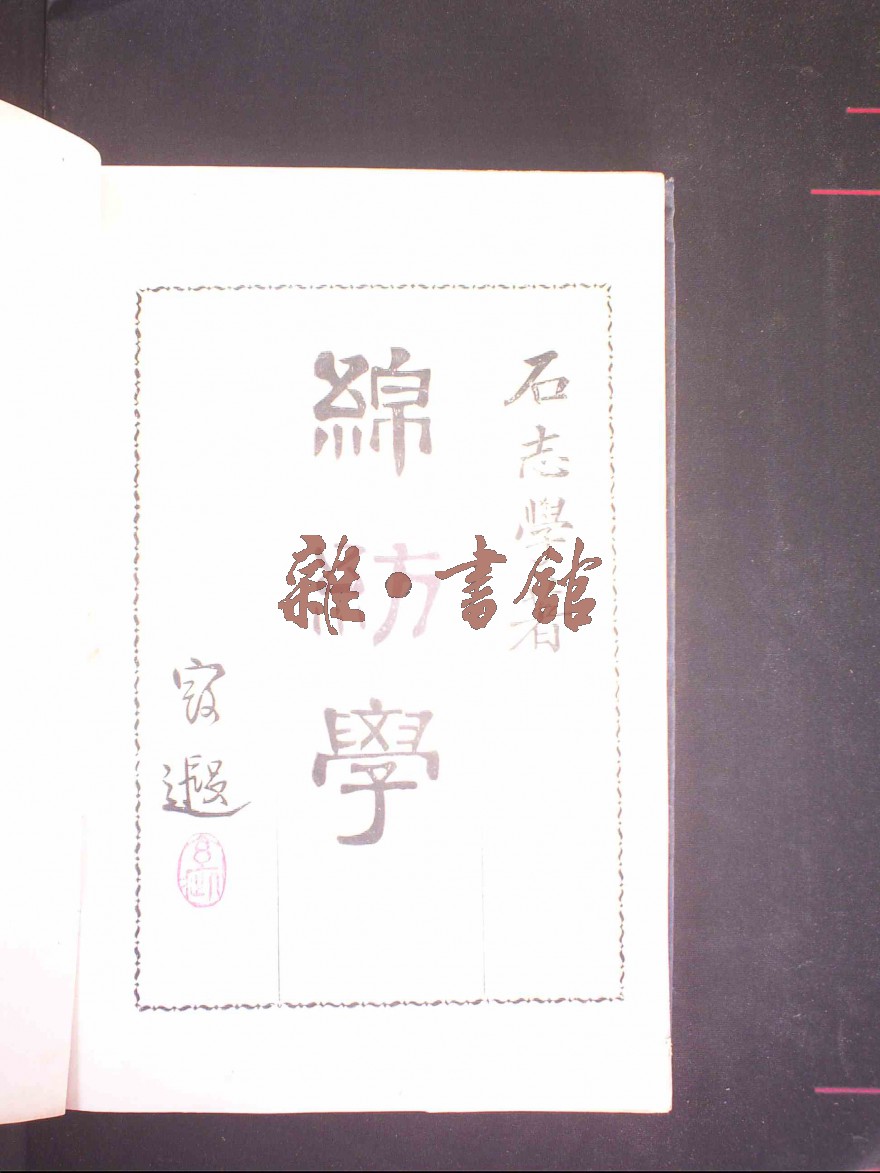 石志學著
綿紡學
寂遐
雜·書館